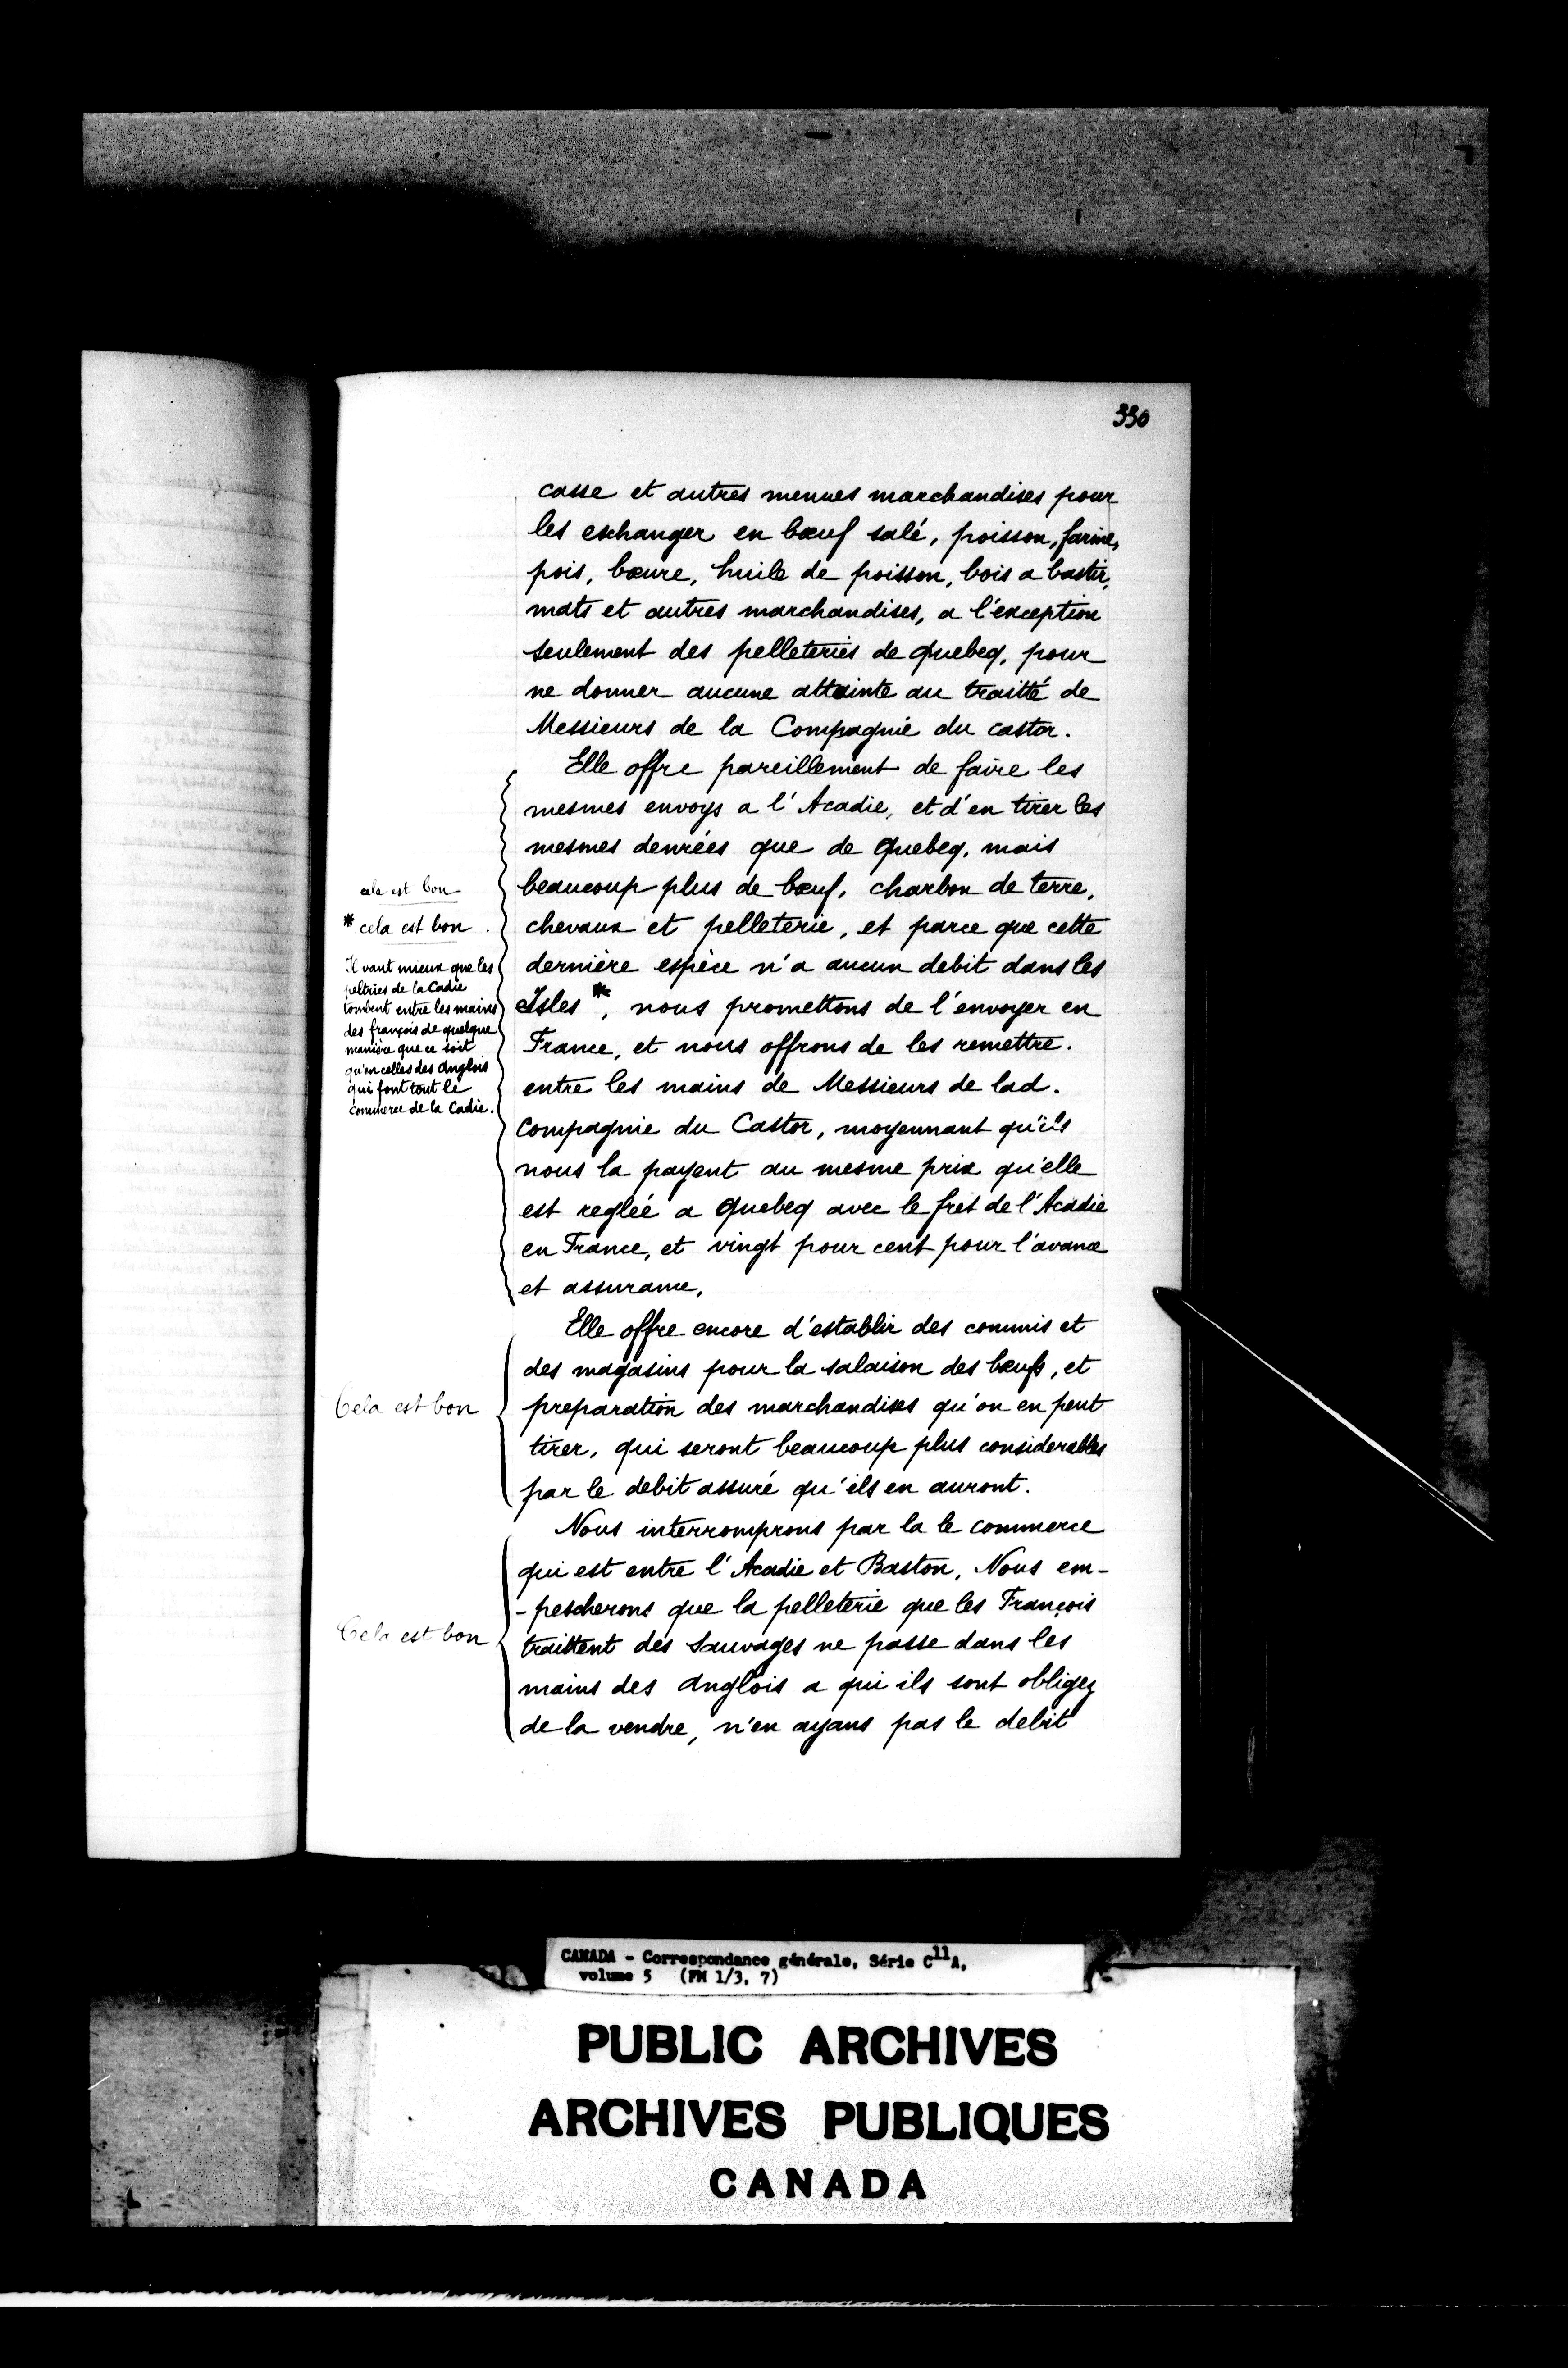 330
casse et autres menues marchandises pour
les eschanger en bœuf salé, poisson, farine,
pois, bœure, huile de poisson, bois a bastir,
mats et autres marchandises, a l'exception
seulement des pelleteries de quebeq, pour
ne donner aucune attainte au traitté de
Messieurs de la Compagnie du castor.
Elle offre pareillement de faire les
mesmes envoys a l'Acadie, et d'en tirer les
mesmes denrées que de quebeq, mais
beaucoup plus de bœuf, charbon de terre,
chevaux et pelleterie, et parce que cette
dernière espèce n'a aucun debit dans les
Isles *, nous promettons de l'envoyer en
France, et nous offrons de les remettre.
entre les mains de Messieurs de lad.
Compagnie du Castor, moyennant qu'ils
nous la payent au mesme prix qu'elle
est reglée a quebeq avec le fret de l'Acadie
en France, et vingt pour cent pour l'avance
et assurance.
cela est bon
* cela est bon.
Il vaut mieux que les
peltries de la Cadie
tombent entre les mains
des françois de quelque
manière que ce soit
qu'en celles des Anglois
qui font tout le
commerce de la Cadie.
Elle offre encore d'establir des commis et
des magasins pour la salaison des bœufs, et
preparation des marchandises qu'on en peut
tirer, qui seront beaucoup plus considerables
par le debit assuré qu'ils en auront.
Cela est bon
Nous interromprons par la le commerce
qui est entre l'Acadie et Baston, Nous em-
-pescherons que la pelleterie que les François
traittent des Sauvages ne passe dans les
mains des Anglois a qui ils sont obligez
de la vendre, n'en ayans pas le debit
Cela est bon
CANADA - Correspondance générale, Série C11A,
volume 5 (FM 1/3, 7)
PUBLIC ARCHIVES
ARCHIVES PUBLIQUES
CANADA